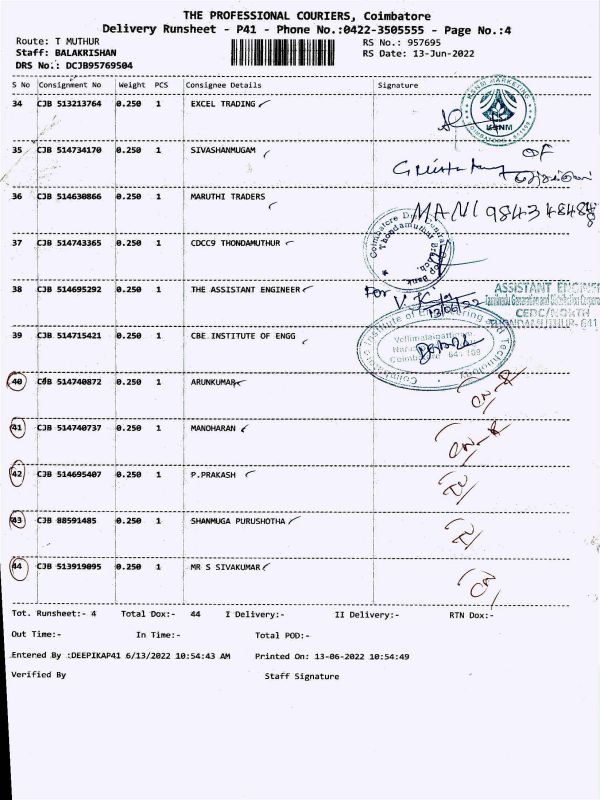 THE PROFESSIONAL COURIERS, Coimbatore
Delivery Runsheet - P41 - Phone No.:0422-3505555 - Page No.:4
Route: T MUTHUR RS No.: 957695
Staff: BALAKRISHAN RS Date: 13-Jun-2022
DRS No.: DCJB95769504
S No Consignment No Weight PCS Consignee Details Signature
34 CJB 513213764 0.250 1 EXCEL TRADING
KSNM MARKETING
KSNM
35 CJB 514734170 0.250 1 SIVASHANMUGAM
36 CJB 514630866 0.250 1 MARUTHI TRADERS
MANI
37 CJB 514743365 0.250 1 CDCC9 THONDAMUTHUR
38 CJB 514695292 0.250 1 THE ASSISTANT ENGINEER
For
13/06/22
ASSISTANT
CEDC/NORTH
THONDAMUTHUR- 641
39 CJB 514715421 0.250 1 CBE INSTITUTE OF ENGG
Coimbatore Institute of Engineering and Technology
40 CJB 514740872 0.250 1 ARUNKUMAR
41 CJB 514740737 0.250 1 MANOHARAN
42 CJB 514695407 0.250 1 P.PRAKASH
43 CJB 88591485 0.250 1 SHANMUGA PURUSHOTHA
44 CJB 513919095 0.250 1 MR S SIVAKUMAR
Tot. Runsheet:- 4 Total Dox:- 44 I Delivery:- II Delivery:- RTN Dox:-
Out Time:- In Time:- Total POD:-
Entered By :DEEPIKAP41 6/13/2022 10:54:43 AM Printed On: 13-06-2022 10:54:49
Verified By Staff Signature